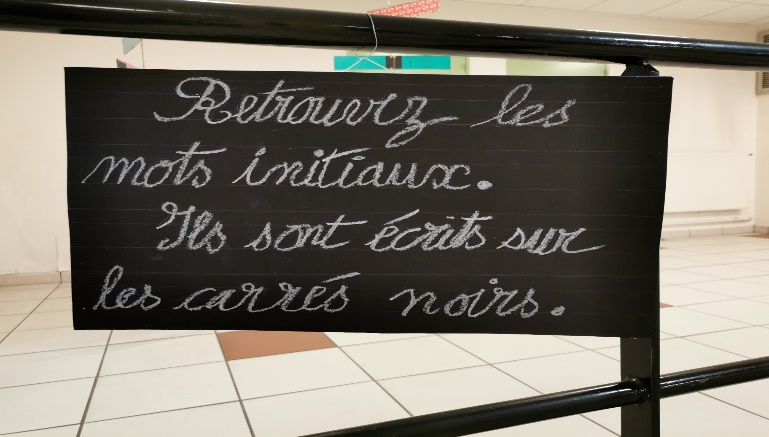 Retrouvez les
mots initiaux.
Ils sont écrits sur
les carrés noirs.